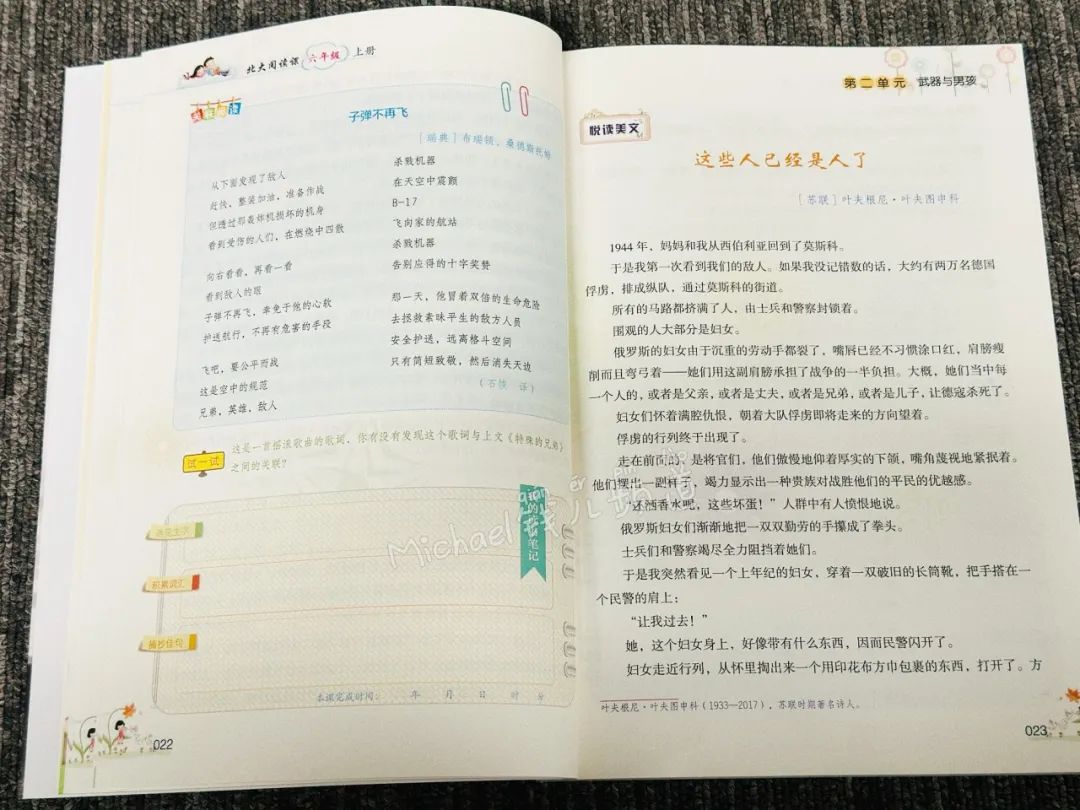 北大阅读课 六年级 上册
关联阅读
子弹不再飞
[瑞典] 布瑞顿、桑德斯托姆
从下面发现了敌人
赶快，整装加油，准备作战
但透过那轰炸机损坏的机身
看到受伤的人们，在燃烧中四散
向右看看，再看一看
看到敌人的眼
子弹不再飞，幸免于他的心软
护送航行，不再有危害的手段
飞吧，要公平而战
这是空中的规范
兄弟，英雄，敌人
杀戮机器
在天空中震颤
B-17
飞向家的航站
杀戮机器
告别应得的十字奖赞
那一天，他冒着双倍的生命危险
去拯救素昧平生的敌方人员
安全护送，远离格斗空间
只有简短致敬，然后消失天边
（石 译）
试一试
这是一首摇滚歌曲的歌词，你有没有发现这个歌词与上文《特殊的兄弟》
之间的关联？
我的读书笔记
积累词汇
摘抄佳句
本课完成时间： 年 月 日 时 分
022
第二单元 武器与男孩
悦读美文
这些人已经是人了
[苏联] 叶夫根尼·叶夫图申科
1944 年，妈妈和我从西伯利亚回到了莫斯科。
于是我第一次看到我们的敌人。如果我没记错数的话，大约有两万名德国
俘虏，排成纵队，通过莫斯科的街道。
所有的马路都挤满了人，由士兵和警察封锁着。
围观的人大部分是妇女。
俄罗斯的妇女由于沉重的劳动手都裂了，嘴唇已经不习惯涂口红，肩膀瘦
削而且弯弓着——她们用这副肩膀承担了战争的一半负担。大概，她们当中每
一个人的，或者是父亲，或者是丈夫，或者是兄弟，或者是儿子，让德寇杀死了。
妇女们怀着满腔仇恨，朝着大队俘虏即将走来的方向望着。
俘虏的行列终于出现了。
走在前面的，是将官们，他们傲慢地仰着厚实的下颌，嘴角蔑视地紧抿着。
他们摆出一副样子，竭力显示出一种贵族对战胜他们的平民的优越感。
“还洒香水呢，这些坏蛋！”人群中有人愤恨地说。
俄罗斯妇女们渐渐地把一双双勤劳的手攥成了拳头。
士兵们和警察竭尽全力阻挡着她们。
于是我突然看见一个上年纪的妇女，穿着一双破旧的长筒靴，把手搭在一
个民警的肩上：
“让我过去！”
她，这个妇女身上，好像带有什么东西，因而民警闪开了。
妇女走近行列，从怀里掏出来一个用印花布方巾包裹的东西，打开了。方
叶夫根尼·叶夫图申科（1933—2017），苏联时期著名诗人。
023